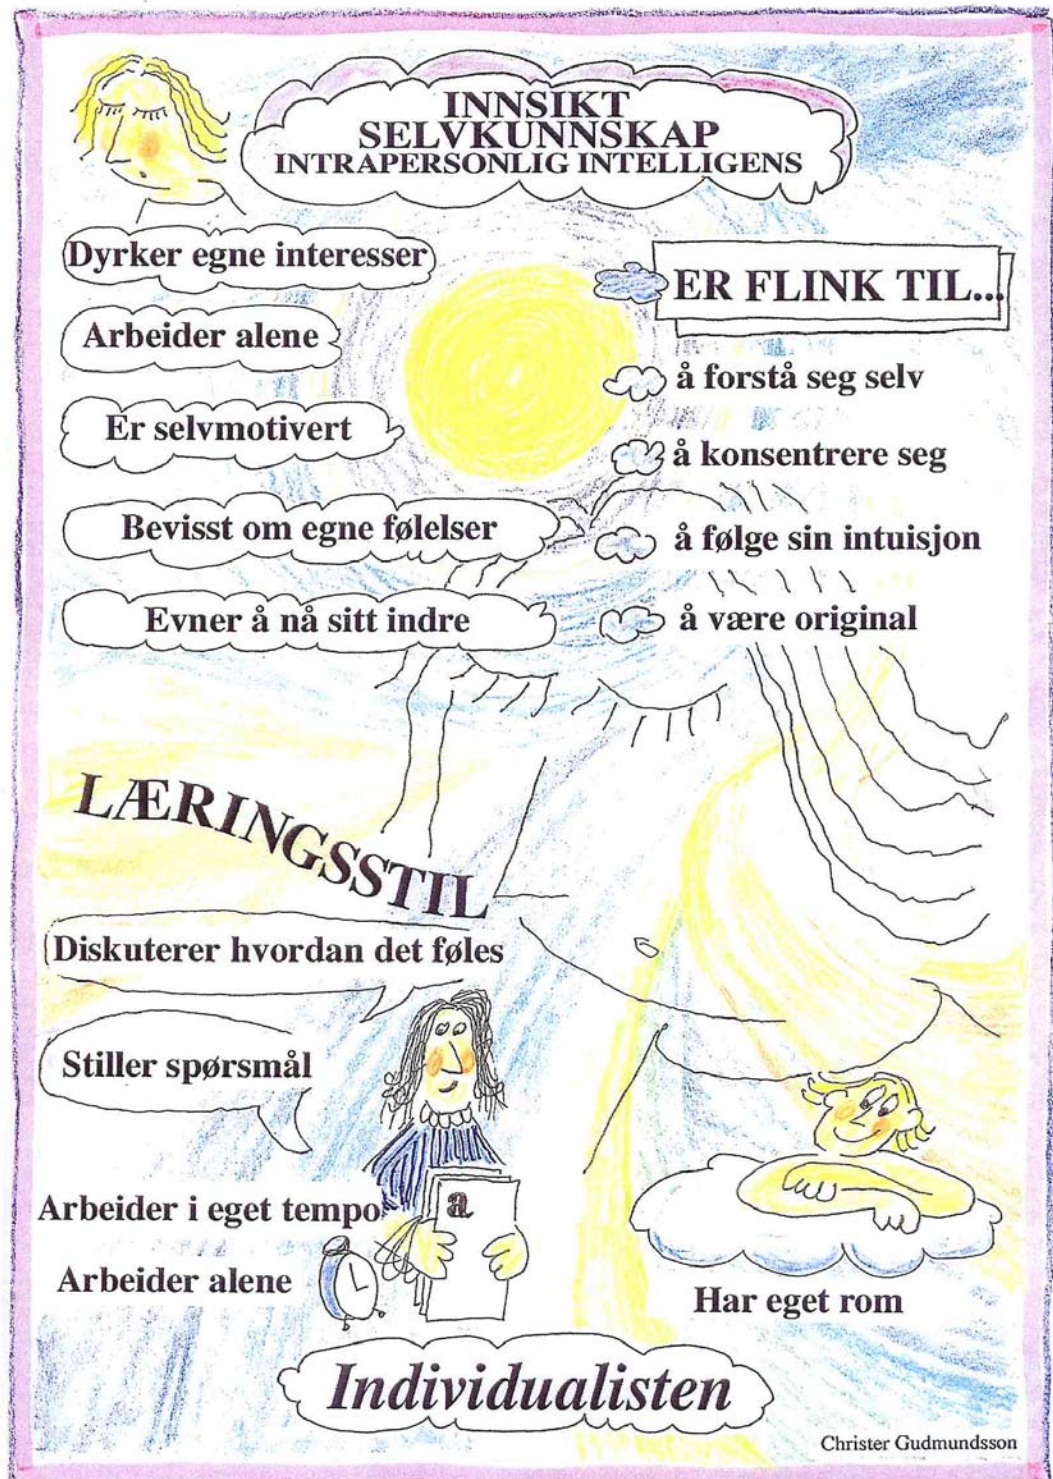 INNSIKT
SELVKUNNSKAP
INTRAPERSONLIG INTELLIGENS
Dyrker egne interesser
Arbeider alene
Er selvmotivert
Bevisst om egne følelser
Evner å nå sitt indre
ER FLINK TIL...
å forstå seg selv
å konsentrere seg
å følge sin intuisjon
å være original
LÆRINGSSTIL
Diskuterer hvordan det føles
Stiller spørsmål
Arbeider i eget tempo
Arbeider alene
a
Har eget rom
Individualisten
Christer Gudmundsson